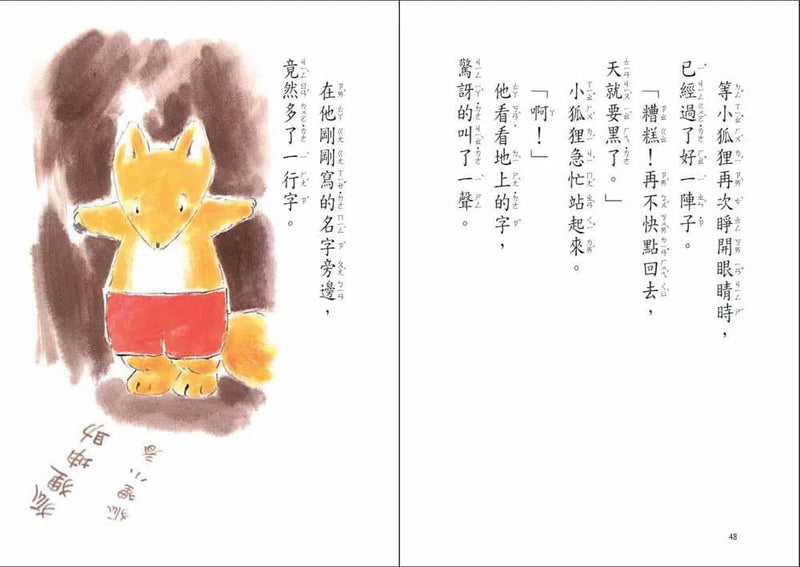 等小狐狸再次睜開眼睛時，
已經過了好一陣子。
「糟糕！再不快點回去，
天就要黑了。」
小狐狸急忙站起來。
「啊！」
他看看地上的字，
驚訝的叫了一聲。
48
在他剛剛寫的名字旁邊，
竟然多了一行字。
狐狸坤助
狐狸小